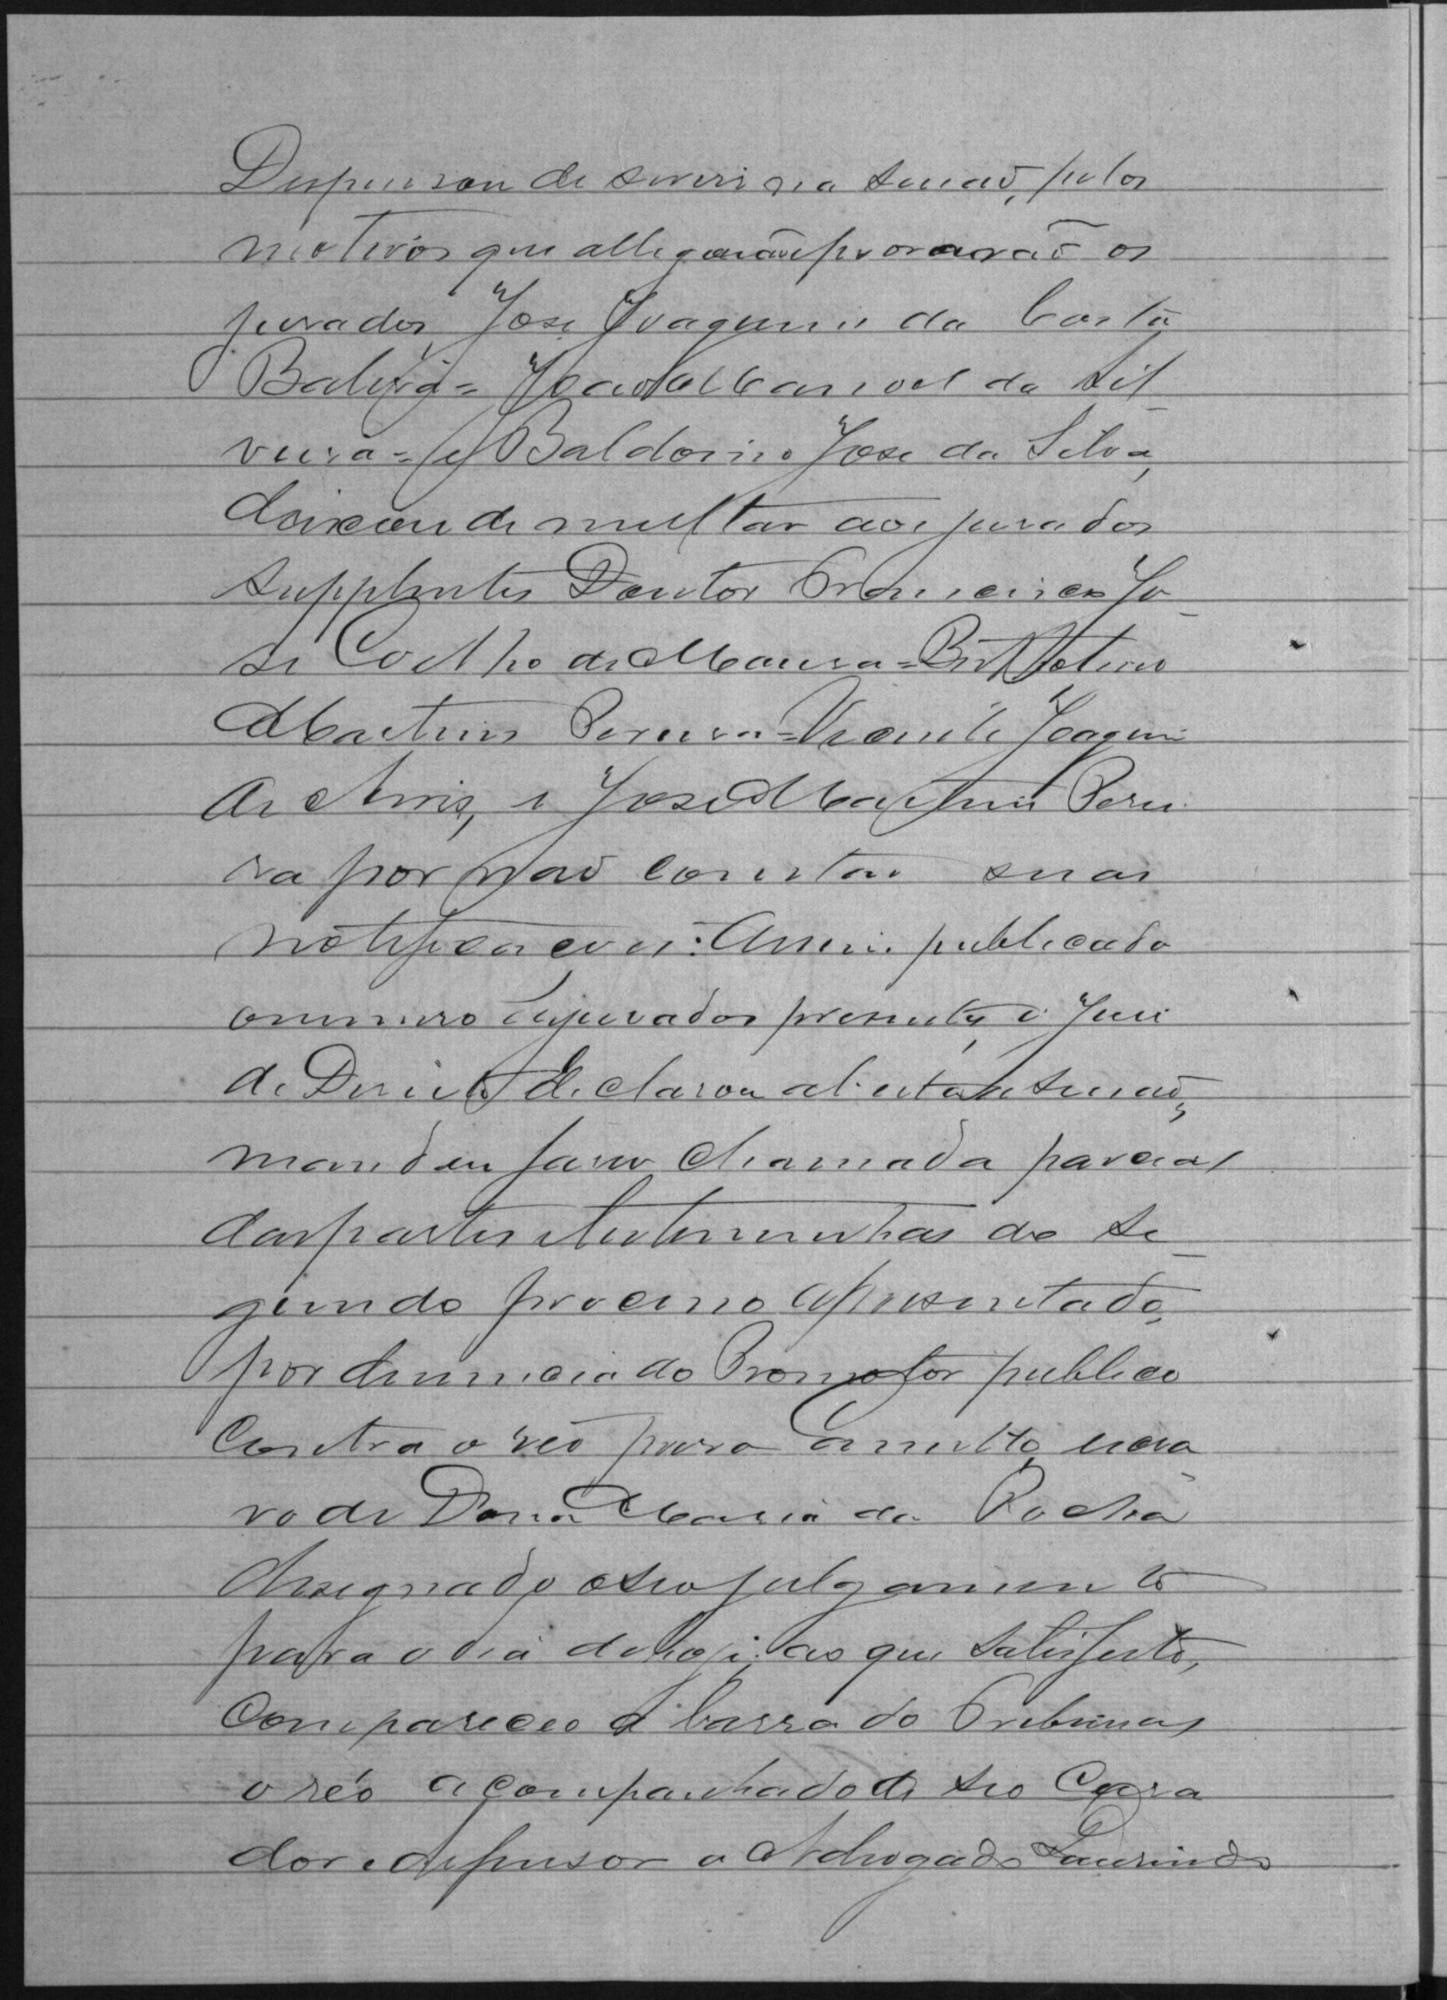 Dispensou de servir na sessaõ, pelos
motivos que allegaraõ e provaraõ os
jurados José Joaquim da Costa
Baliza = João Manoel da Sil
veira = e Baldoino José da Silva,
deixou de multar aos jurados
Supplentes Doutor Francisco Jo-
sé Coelho de Moura =
Martins Pereira = Vicente Joaquim
de Assis, e José Martins Perei
ra por naõ constar suas
notificacões: Assim publicado
o numero de jurados presentes, o Juis
de Direito declarou aberta a sessaõ,
mandou faser chamada parcial
das partes e testemunhas do se-
gundo processo apresentado,
por denuncia do Promotor publico
contra o reó escra
vo de Dona Maria da Rocha
designado o seo julgamento
para o dia de hoje; ao que satisfeito,
Compareceo á barra do Tribunal
o réo acompanhado de seo Cura
dor e defensor o Advogado Laurindo